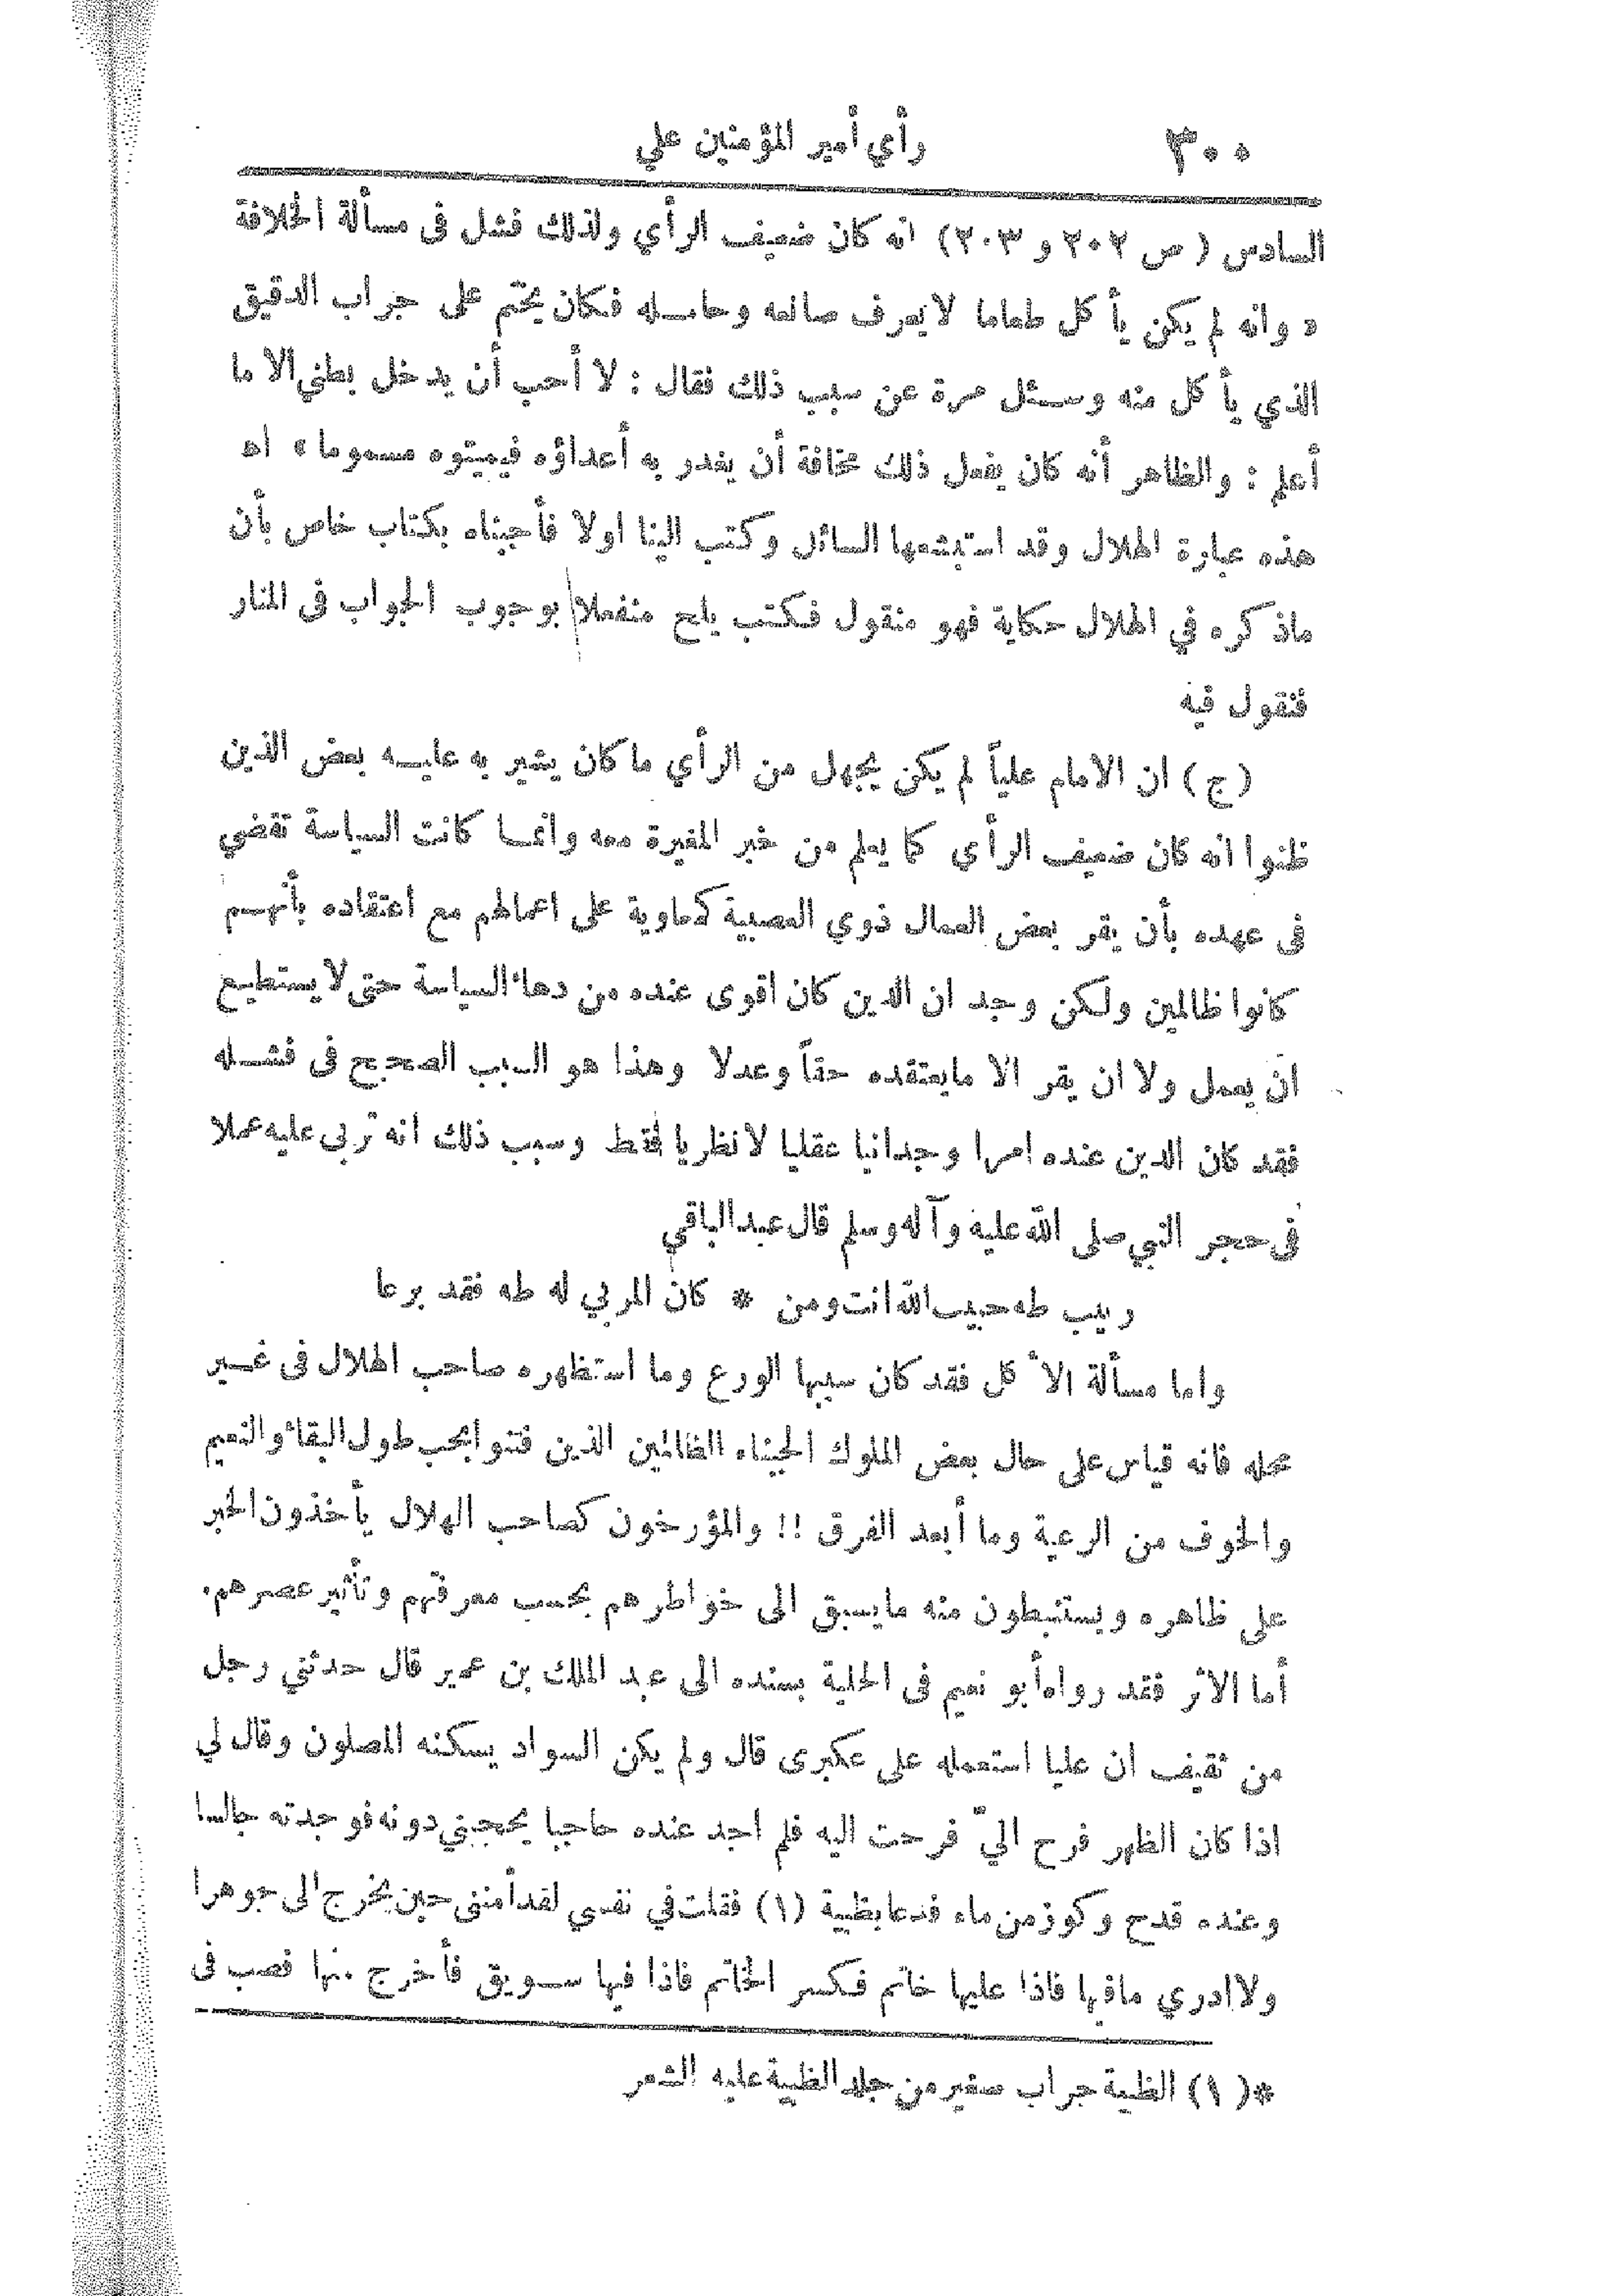 ٣٠٠ رأي أمير المؤمنين علي
السادس ( ص ٢٠٢ و ٢٠٣) انه كان ضعيف الرأي ولذلك فشل فى مسألة الخلافة
« وانه لم يكن يأ كل طعاما لايعرف صانعه وحامله فكان يختم على جراب الدقيق
الذي يأ كل منه وسئل مرة عن سبب ذلك فقال : لا أحب أن يدخل بطني الا ما
أعلم : والظاهر أنه كان يفعل ذلك مخافة أن يغدر به أعداؤه فيميتوه مسموما » اهـ
هذه عبارة الهلال وقد استبشعها السائل وكتب الينا اولا فأجبناه بكتاب خاص بأن
ماذكره في الهلال حكاية فهو منقول فكتب يلح منفعلا بوجوب الجواب فى المنار
فنقول فيه
(ج) ان الامام علياً لم يكن يجهل من الرأي ما كان يشير به عليه بعض الذين
ظنوا انه كان ضعيف الرأي كما يعلم من خبر المغيرة معه وانما كانت السياسة تقضي
فى عهده بأن يقر بعض العمال ذوي العصبية كمعاوية على اعمالهم مع اعتقاده بأنهم
كانوا ظالمين ولكن وجد ان الدين كان اقوى عنده من دهاء السياسة حتى لا يستطيع
ان يعمل ولا ان يقر الا مايعتقده حقاً وعدلا وهذا هو السبب الصحيح فى فشله
فقد كان الدين عنده امرا وجدانيا عقليا لا نظريا فقط وسبب ذلك انه تربى عليه عملا
فى حجر النبي صلى الله عليه وآله وسلم قال عبد الباقي
ربيب طه حبيب الله انت ومن * كان المربي له طه فقد برعا
واما مسألة الأ كل فقد كان سببها الورع وما استظهره صاحب الهلال فى غير
محله فانه قياس على حال بعض الملوك الجبناء الظالمين الذين فتنوا بحب طول البقاء والنعيم
والخوف من الرعية وما أبعد الفرق !! والمؤرخون كصاحب الهلال يأخذون الخبر
على ظاهره ويستنبطون منه مايسبق الى خواطرهم بحسب معرفتهم وتأثير عصرهم.
أما الأثر فقد رواه أبو نعيم فى الحلية بسنده الى عبد الملك بن عمير قال حدثني رجل
من ثقيف ان عليا استعمله على عكبرى قال ولم يكن السواد يسكنه المصلون وقال لي
اذا كان الظهر فرح اليّ فرحت اليه فلم اجد عنده حاجبا يحجبني دونه فوجدته جالسا
وعنده قدح وكوز من ماء فدعا بظبية (١) فقلت في نفسي لقد أمنني حين يخرج الى جوهرا
ولا ادري مافيها فاذا عليها خاتم فكسر الخاتم فاذا فيها سويق فأخرج منها فصب فى
*(١) الظبية جراب صغير من جلد الظبية عليه الشعر